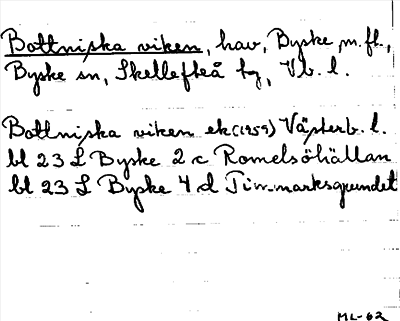 Bottniska viken, hav, Byske m.fl.,
Byske sn, Skellefteå tg, Vb. l.
Bottniska viken ek (1959) Västerb. l.
bl 23 L Byske 2 c Romelsöhällan
bl 23 L Byske 4 d Timmarksgrundet
ML-62